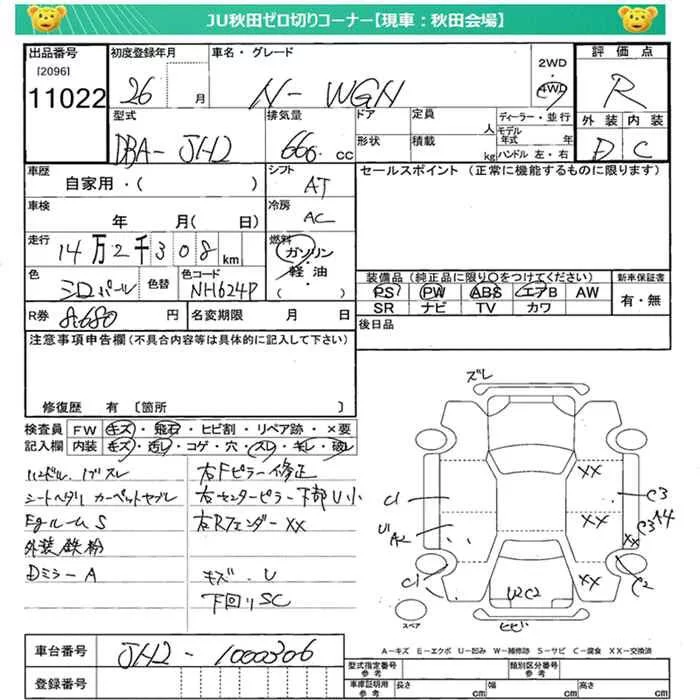 JU秋田ゼロ切りコーナー【現車：秋田会場】
出品番号
[2096]
11022
初度登録年月
26 月
車名・グレード
N-WGN
2WD
4WD
評価点
R
外装 内装
D C
型式
DBA-JH2
排気量
660 CC
ドア
定員
人
ディーラー・並行
モデル年式 年
形状
積載
kg
ハンドル 左・右
車歴
自家用・( )
シフト
AT
セールスポイント (正常に機能するものに限ります)
車検
年 月( 日)
冷房
AC
走行
14万2千308km
燃料
ガソリン
・
軽油
( )
色
シロパール
色替
色コード
NH624P
装備品 (純正品に限り〇をつけてください)
新車保証書
PS PW ABS エアB AW
有・無
SR ナビ TV カワ
R券
8,680 円
名変期限 月 日
後日品
注意事項申告欄 (不具合内容等は具体的に記入して下さい)
修復歴 有 〔箇所 〕
検査員
記入欄
FW キズ・飛石・ヒビ割・リペア跡・×要
内装 キズ・汚レ・コゲ・穴・スレ・キレ・破レ
ハンドル、ノブスレ
シートヘタリ カーペットヤブレ
EgルームS
外装鉄粉
DミラーA
右Fピラー修正
右センターピラー下部U小
右Rフェンダー XX
キズ、U
下回りSC
ズレ
XX
C1
C3
XX
U1
A2
C3
A4
XX
C1
XX
C2
U2C2
スペア
ヒビ
A-キズ E-エクボ U-凹み W-補修跡 S-サビ C-腐食 XX-交換済
車台番号
JH2-1000306
登録番号
型式指定番号
参考
類別区分番号
参考
車庫証明用
参考
長さ cm
幅 cm
高さ cm